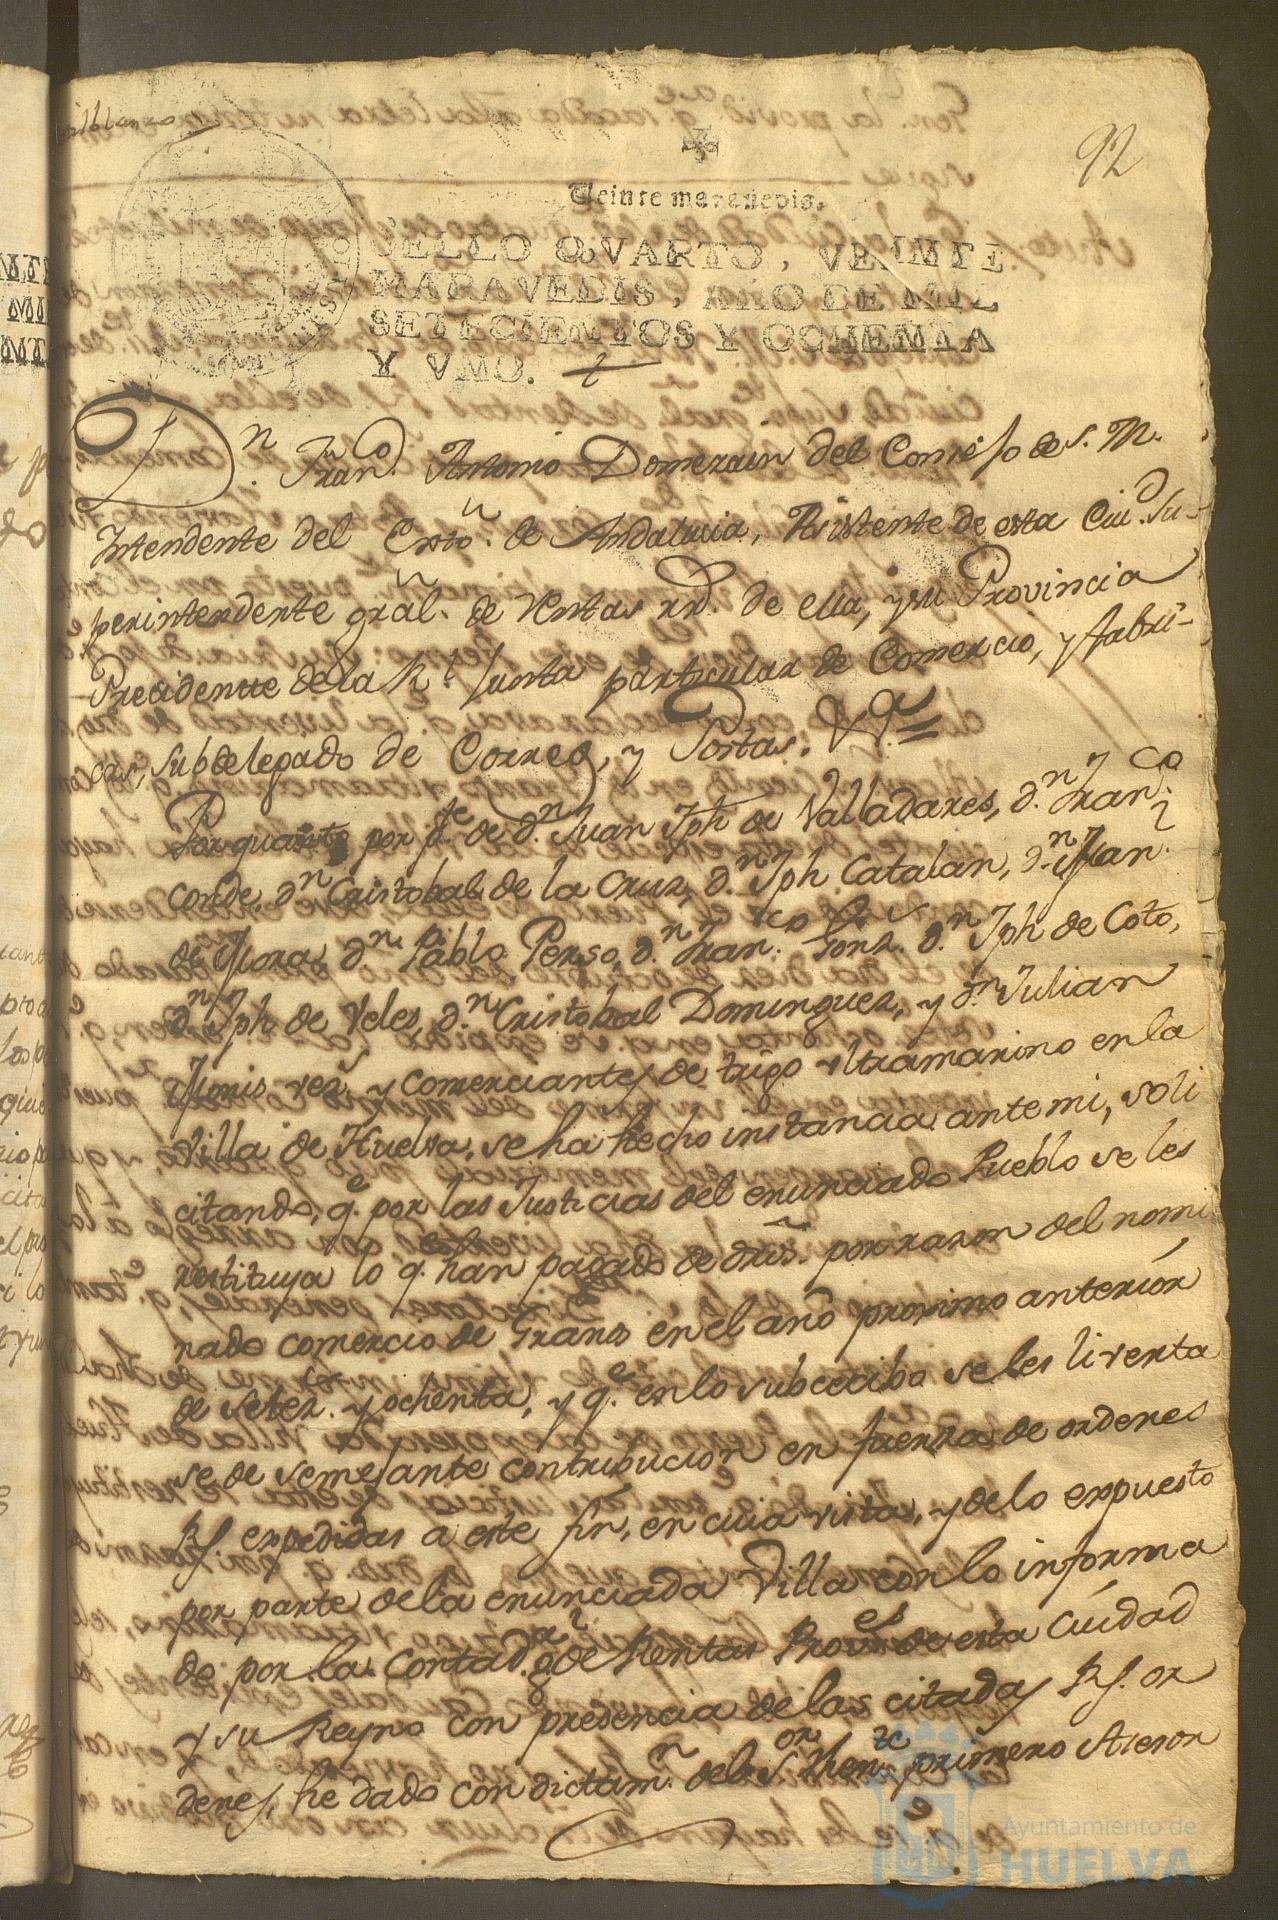 92
Veinte maravedis.
SELLO QVARTO, VEINTE
MARAVEDIS, AÑO DE MIL
SETECIENTOS Y OCHENTA
Y VNO.
Dn. Franco. Antonio Domezain del Consejo de S. M.
Intendente del Exto. de Andalucia, Asistente de esta Ciud. Su-
perintendente gral. de Rentas rrs. de ella, y su Provincia
Presidente de la Rl. Junta particular de Comercio, y fabri-
cas, subdelegado de Correos, y Postas. Va.
Por quanto por pte. de dn. Juan Jph de Valladares, dn. Franco.
Conde, dn. Cristobal de la Cruz, dn. Jph Catalan, dn. Man.
de Mora dn. Pablo Perso, dn. Franco. Gonz. dn. Jph de Coto,
dn. Jph de Veles, dn. Cristobal Dominguez, y dn. Julian
vezs. y comerciantes de trigo ultramarino en la
Villa de Huelva, se ha hecho instancia ante mi, soli
citando, qe. por las Justicias del enunciado Pueblo se les
restituya lo q. han pagado de dros. por razon del nomi
nado comercio de Granos en el año proximo anterior
de setez. y ochenta, y qe. en lo subcecibo se les liverta
se de semejante contribucion en fuerza de ordenes
Rs. expedidas a este fin, en cuia vista, y de lo expuesto
por parte de la enunciada Villa con lo informa
do por la Contada. gl. de Rentas Proves. de esta Ciudad
y su Reyno con presencia de las citadas Rs. or
denes, he dado con dictamn. del Sor. Thente. primero Asesor
Ayuntamiento de
HUELVA